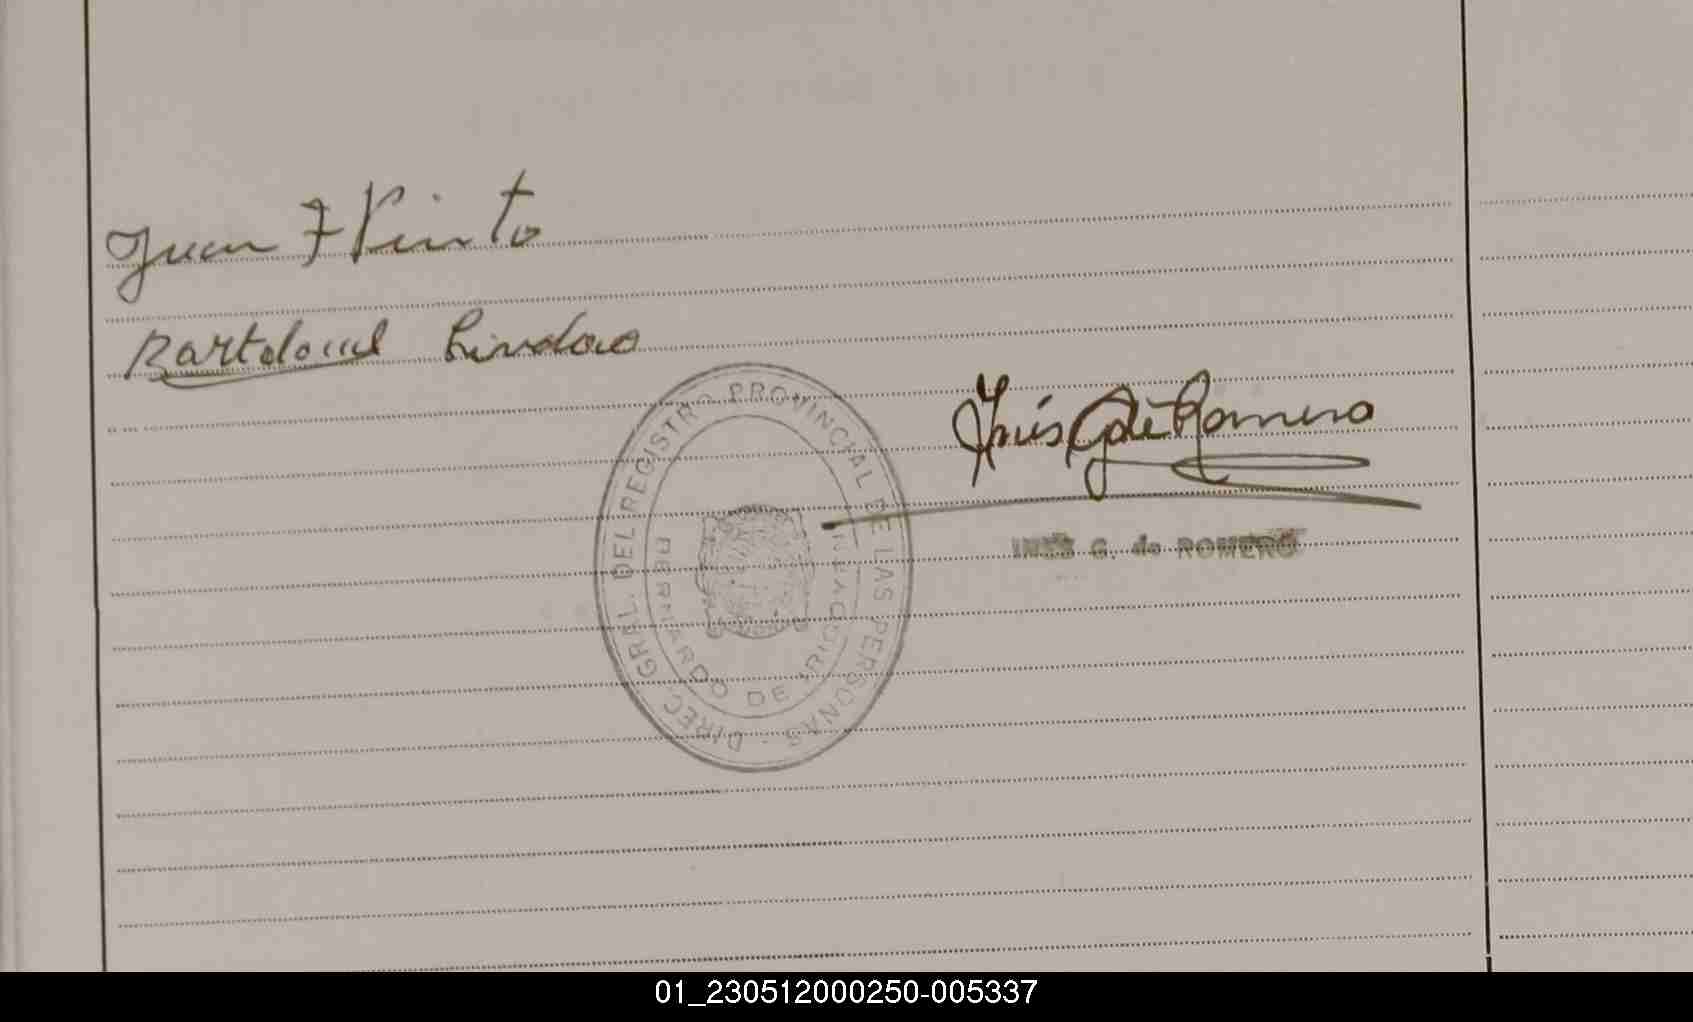 Juan F Pinto
Bartolomé Lindao
DIREC. GRAL. DEL REGISTRO PROVINCIAL DE LAS PERSONAS
BERNARDO DE IRIGOYEN
Inés G de Romero
INES G. de ROMERO
01_230512000250-005337